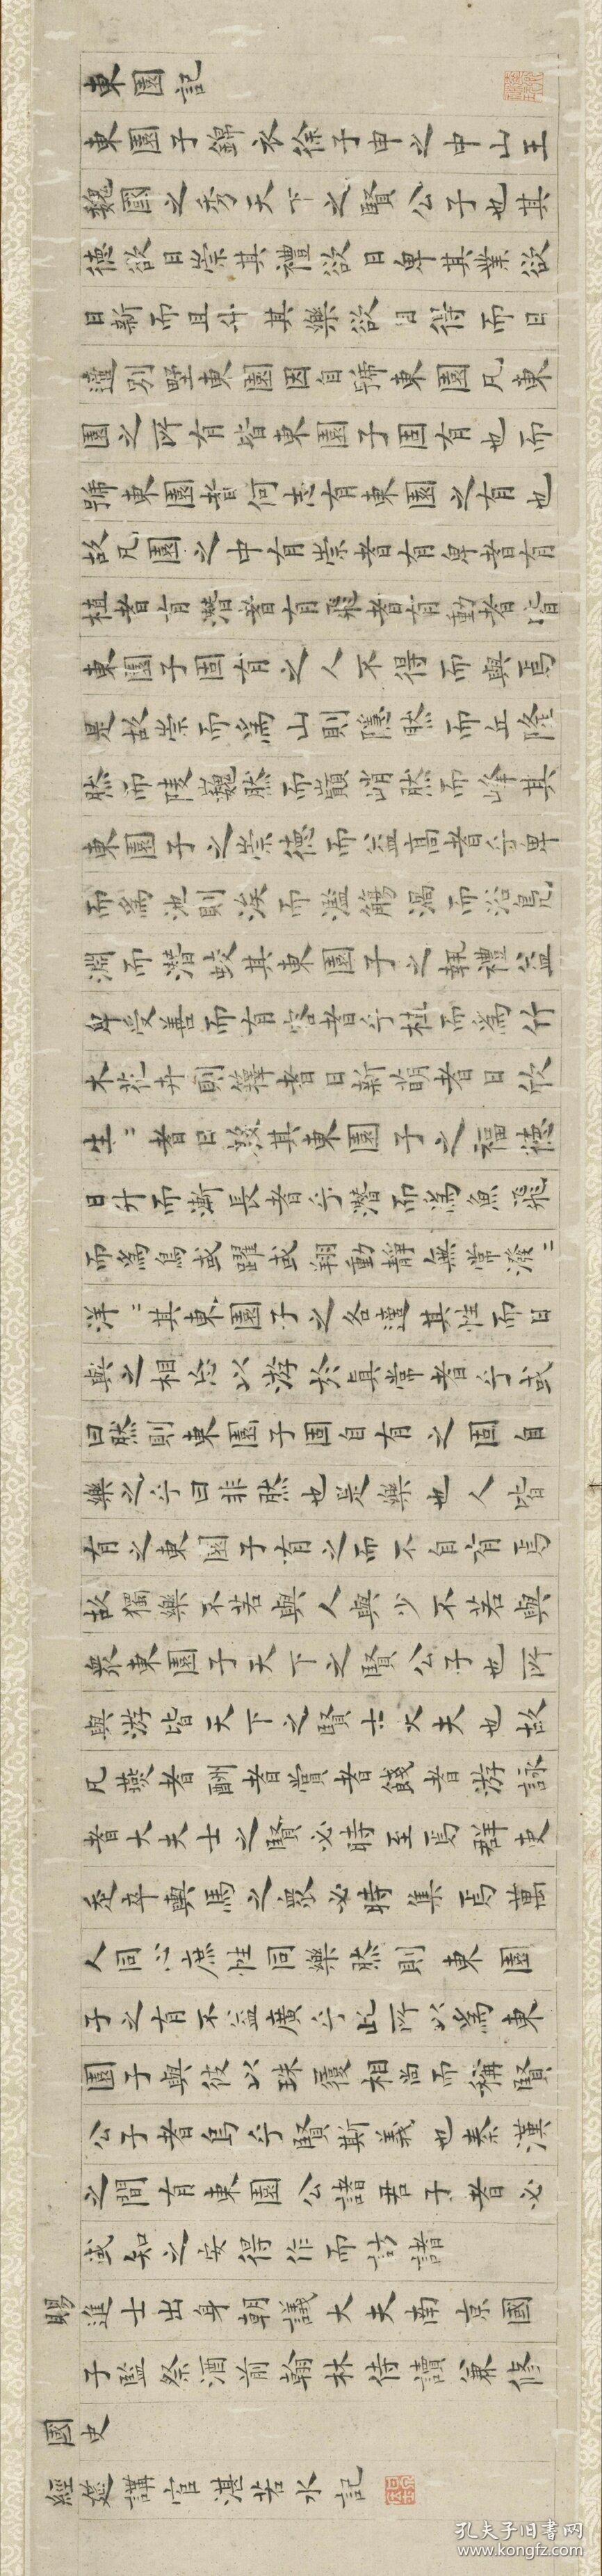 東園記
東園子錦衣徐子申之中山王
魏國之秀天下之賢公子也其
德欲日崇其禮欲日卑其業欲
日新而且升其樂欲日得而日
適別墅東園因自號東園凡東
園之所有皆東園子固有也而
號東園者何志有東園之有也
故凡園之中有崇者有卑者有
植者有潛者有飛者有動者皆
東園子固有之人不得而與焉
是故崇而爲山則隱然而丘隆
然而陵巍然而巔峭然而峰其
東園子之崇德而益高者乎卑
而爲池則涘而濫觴渦而浴鳧
淵而潛蛟其東園子之執禮益
卑受善而有容者乎植而爲竹
木花卉則籜者日新萌者日欣
生〃者日發其東園子之福德
日升而漸長者乎潛而爲魚飛
而爲鳥或躍或翔動靜無常潑〃
洋〃其東園子之各適其性而日
與之相忘以游於真常者乎或
曰然則東園子固自有之固自
樂之乎曰非然也是樂也人皆
有之東園子有之而不自有焉
故獨樂不若與人與少不若與
衆東園子天下之賢公子也所
與游皆天下之賢士大夫也故
凡燕者酬者賞者餞者游詠
者大夫士之賢必時至焉群吏
走卒輿馬之眾必時集焉萬
人同心庶性同樂然則東園
子之有不益廣乎此所以爲東
園子與彼以珠履相尚而稱賢
公子者烏乎賢斯義也秦漢
之間有東園公諸君子者必
或知之安得作而訪諸
賜進士出身朝議大夫南京國
子監祭酒前翰林侍讀兼修
國史
經筵講官湛若水記
孔夫子旧书网
www.kongfz.com